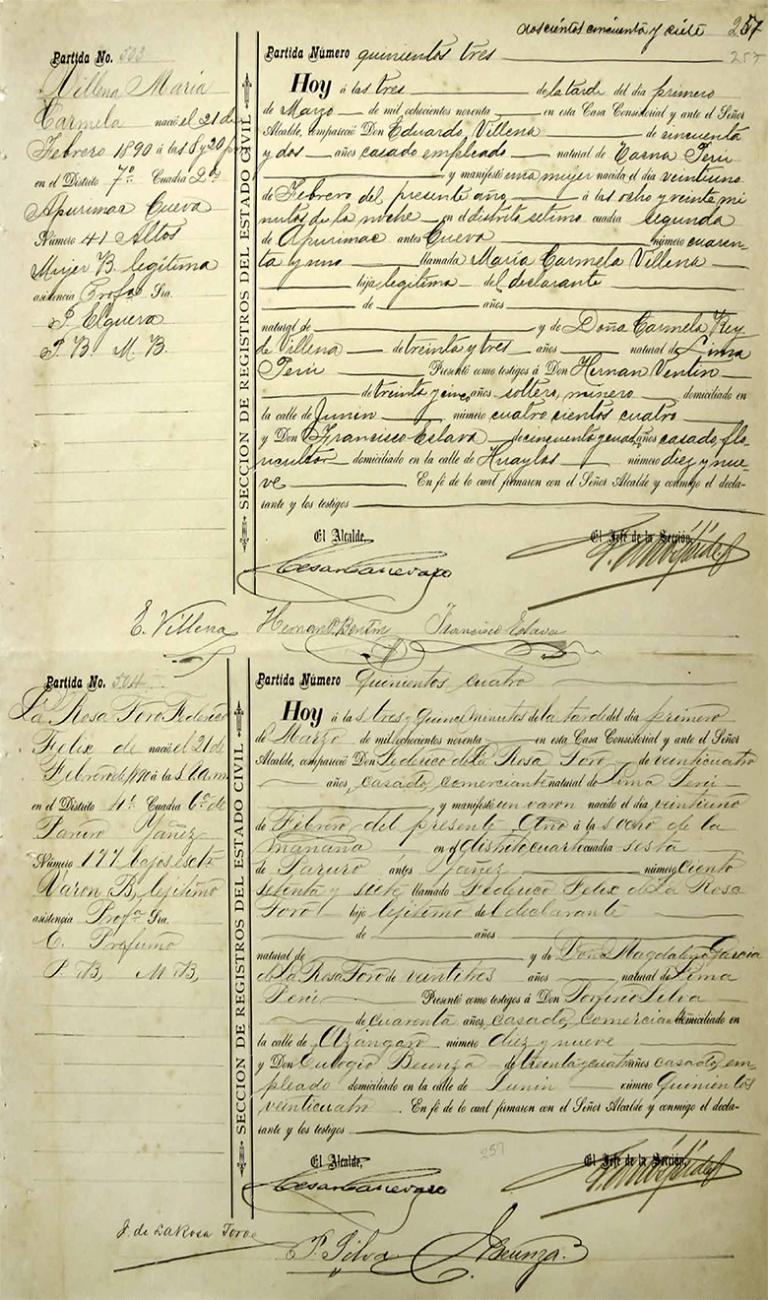 doscientos cincuenta y siete 257
257
Partida No. 503
Villena María
Carmela nació el 21 de
Febrero 1890 á las 8 y 20 p m
en el Distrito 7º Cuadra 2ª de
Apurimac Cueva
Número 41 Altos
Mujer B. legítima
asistencia Profa Sra.
P. Elguera
P. B. M. B.
SECCION DE REGISTROS DEL ESTADO CIVIL
Partida Número quinientos tres
Hoy á las tres de la tarde del día primero
de Marzo de mil ochocientos noventa en esta Casa Consistorial y ante el Señor
Alcalde, compareció Don Eduardo Villena de cincuenta
y dos años casado empleado natural de Perú
y manifestó una mujer nacida el día veintiuno
de Febrero del presente año á las ocho y veinte mi
nutos de la noche en el distrito setimo cuadra segunda
de Apurimac antes Cueva número cuaren-
ta y uno llamada María Carmela Villena
hija legitima del declarante
de años
natural de y de Doña Carmela Rey
de Villena de treinta y tres años natural de Lima
Perú Presentó como testigos á Don Hernan
de treinta y cinco años, soltero, minero domiciliado en
la calle de Junin número cuatro cientos cuatro
y Don Francisco Eslava de cincuenta y cuatro años casado, flo
ricultor domiciliado en la calle de Huaylas número diez y nue-
ve En fé de lo cual firmaron con el Señor Alcalde y conmigo el decla-
rante y los testigos
El Alcalde, El Jefe de la Sección,
Cesar Canevaro
E. Villena Francisco Eslava
Partida No. 504
La Rosa Toro Federico
Felix de nació el 21 de
Febrero de 1890 á las 8 a m
en el Distrito 4º Cuadra 6ª de
Paruro Yáñez
Número 177 bajos
Varon B, lejitimo
asistencia Profa Sra.
C. Profumo
P. B, M B,
SECCION DE REGISTROS DEL ESTADO CIVIL
Partida Número Quinientos cuatro
Hoy á las tres y quince minutos de la tarde del día primero
de Marzo de mil ochocientos noventa en esta Casa Consistorial y ante el Señor
Alcalde, compareció Don Federico de La Rosa Toro de veinticuatro
años, casado, comerciante natural de Lima Perú
y manifestó un varon nacido el día veintiuno
de Febrero del presente Año á las ocho de la
mañana en el distrito cuarto cuadra sesta
de Paruro ántes Yañez número Ciento
setenta y siete llamado Federico Felix de La Rosa
Toro hijo lejitimo del declarante
de años
natural de y de Doña Magdalena Garcia
de La Rosa Toro de veintitres años natural de Lima
Perú Presentó como testigos á Don Porfirio Silva
de cuarenta años, casado, comerciante domiciliado en
la calle de Azángaro número diez y nueve
y Don Eulogio de treinta y cuatro años casado, em-
pleado domiciliado en la calle de Junin número Quinientos
veinticuatro. En fé de lo cual firmaron con el Señor Alcalde y conmigo el decla-
rante y los testigos
257
El Alcalde, El Jefe de la Sección,
Cesar Canevaro
F. de La Rosa Toro
P. Silva